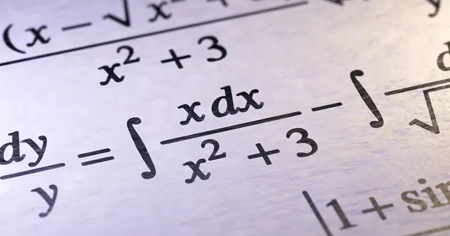 (x − √x
x² + 3
dy/y = ∫ x dx / x² + 3 − ∫ d / √
|1 + sin